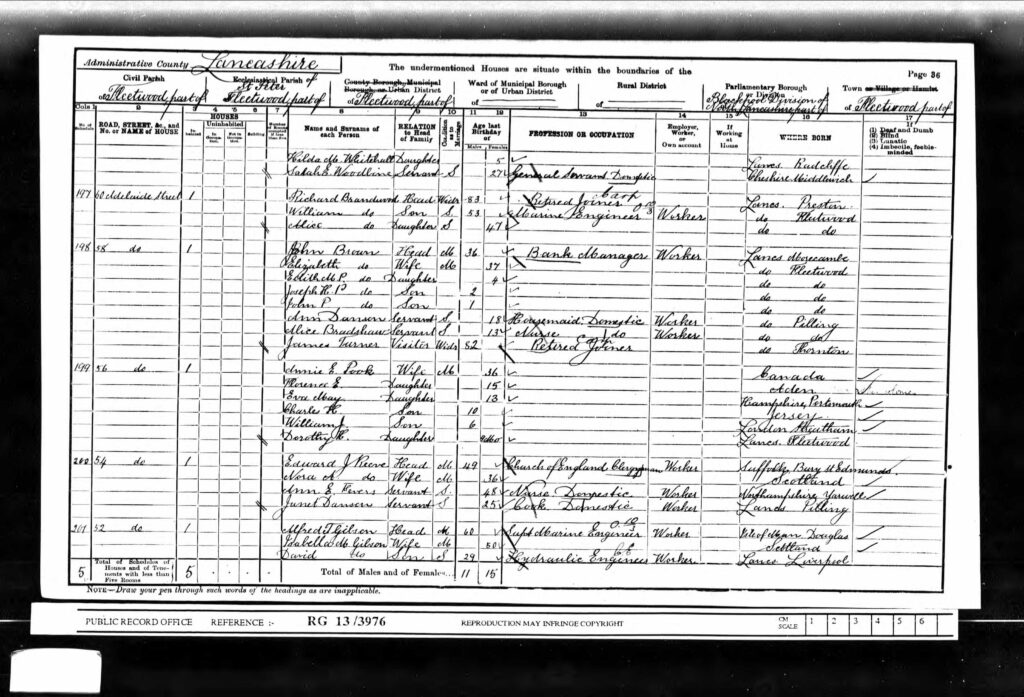 Administrative County Lancashire
The undermentioned Houses are situate within the boundaries of the
Page 36
Civil Parish
of Fleetwood part of
Ecclesiastical Parish of
St Peter
Fleetwood part of
County Borough, Municipal
Borough or Urban District
of Fleetwood part of
Ward of Municipal Borough
or of Urban District
of
Rural District
of
Parliamentary Borough
or Division
Blackpool Division of
North Lancashire part of
Town or Village or Hamlet
of Fleetwood part of
Cols. 1 2 3 4 5 6 7 8 9 10 11 12 13 14 15 16 17
No. of Schedule
ROAD, STREET, &c., and No. or NAME of HOUSE
HOUSES
Inhabited
Uninhabited
In Occupation
Not in Occupation
Building
Name and Surname of each Person
RELATION to Head of Family
Condition as to Marriage
Age last Birthday of
Males Females
PROFESSION OR OCCUPATION
Employer, Worker, or Own account
If Working at Home
WHERE BORN
(1) Deaf and Dumb
(2) Blind
(3) Lunatic
(4) Imbecile, feeble-minded
Hilda M. Whiteball Daughter 5 Lancs Radcliffe
Sarah E. Woodbine Servant S 27 General Servant Domestic Cheshire Middlewich
197 60 Adelaide Street 1 Richard Brandwood Head Widr 83 Retired Joiner Carp Lancs. Preston
William do Son S. 53 Marine Engineer Worker do Fleetwood
Alice do Daughter S 47 do do
198 58 do 1 John Brown Head M 36 Bank Manager Worker Lancs Morecambe
Elizabeth do Wife M 37 do Fleetwood
Edith M. P. do Daughter 4 do do
Joseph H. P. do Son 2 do do
John P. do Son 1 do do
Ann Danson Servant S 18 Housemaid Domestic Worker do Pilling
Alice Bradshaw Servant S 13 Nurse do Worker do do
James Turner Visitor Widr 82 Retired Joiner do Thornton
199 56 do 1 Annie E. Pook Wife M 36 Canada
Florence E. Daughter 15 Aden
Eva May Daughter 13 Hampshire, Portsmouth
Charles H. Son 10 Jersey
William J. Son 6 London
Dorothy H. Daughter 9 Mo. Lancs. Fleetwood
200 54 do 1 Edward J Reeve Head M 49 Church of England Clergyman Worker Suffolk, Bury St Edmunds
Nora A. do Wife M. 36 Scotland
Ann E. Servant S. 48 Nurse Domestic Worker Northampshire, Yarwell
Janet Danson Servant S 25 Cook Domestic Worker Lancs Pilling
201 52 do 1 Alfred T. Gilson Head M 60 Supt Marine Engineer Worker Isle of Man Douglas
Isabella M Gilson Wife M 50 Scotland
David do Son S 29 Hydraulic Engineer Worker Lancs Liverpool
5 Total of Schedules of Houses and of Tenements with less than Five Rooms 5 Total of Males and of Females... 11 15
NOTE—Draw your pen through such words of the headings as are inapplicable.
PUBLIC RECORD OFFICE REFERENCE :- RG 13/3976 REPRODUCTION MAY INFRINGE COPYRIGHT CM SCALE 1 2 3 4 5 6